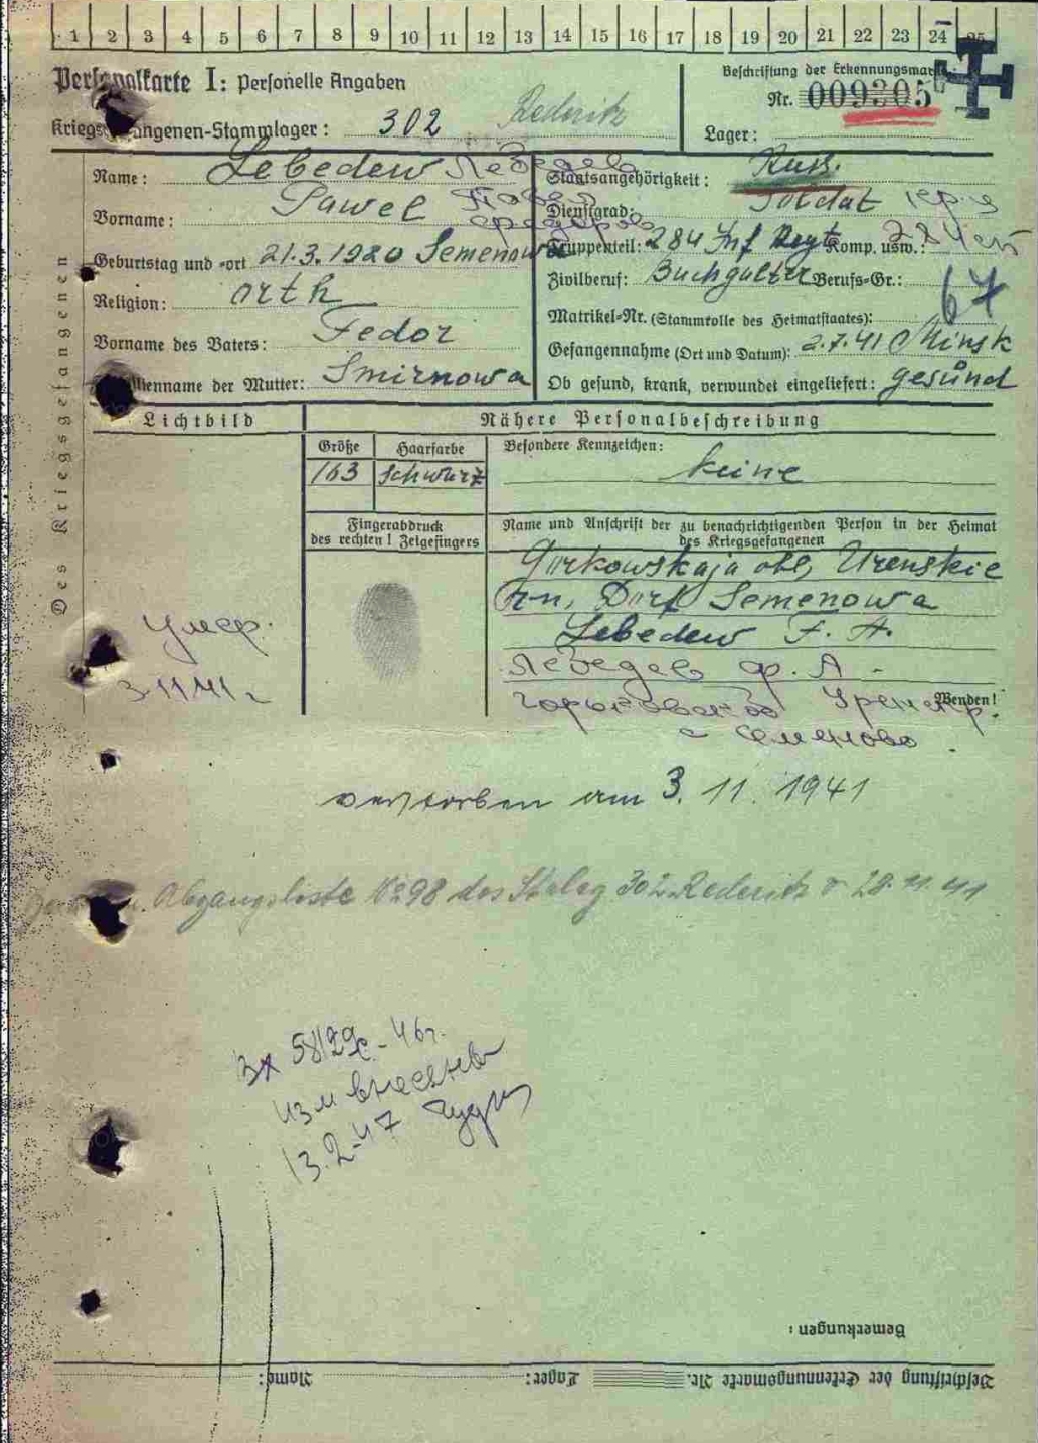 1 2 3 4 5 6 7 8 9 10 11 12 13 14 15 16 17 18 19 20 21 22 23 24 25
Personalkarte I: Personelle Angaben
Beschriftung der Erkennungsmarke
Nr. 009305
Kriegsgefangenen-Stammlager: 302 Rederitz
Lager:
Des Kriegsgefangenen
Name: Lebedew Лебедев
Vorname: Pawel Павел
Федоров
Geburtstag und -ort 21.3.1920 Semenowa
Religion: orth
Vorname des Vaters: Fedor
Familienname der Mutter: Smirnowa
Staatsangehörigkeit: Russ.
Dienstgrad: Soldat
Truppenteil: 284 Inf Regt Komp. usw.:
Zivilberuf: Buchgalter Berufs-Gr.:
67
Matrikel-Nr. (Stammrolle des Heimatstaates):
Gefangennahme (Ort und Datum): 2.7.41 Minsk
Ob gesund, krank, verwundet eingeliefert: gesund
Lichtbild
Nähere Personalbeschreibung
Größe Haarfarbe Besondere Kennzeichen:
163 Schwarz keine
Fingerabdruck
des rechten! Zeigefingers
Name und Anschrift der zu benachrichtigenden Person in der Heimat
des Kriegsgefangenen
Gorkowskaja obl, Urenskie
Rn, Dorf Semenowa
Lebedew F. A.
Лебедев Ф. А.
Wenden!
с Семеново
Умер.
3.11.41 г
verstorben am 3. 11. 1941
Abgangsliste No 98 des Stalag 302 Rederitz v 28.11.41
изм внесены
13.2-47
Bemerkungen:
Beschriftung der Erkennungsmarke Nr. Lager: Name: